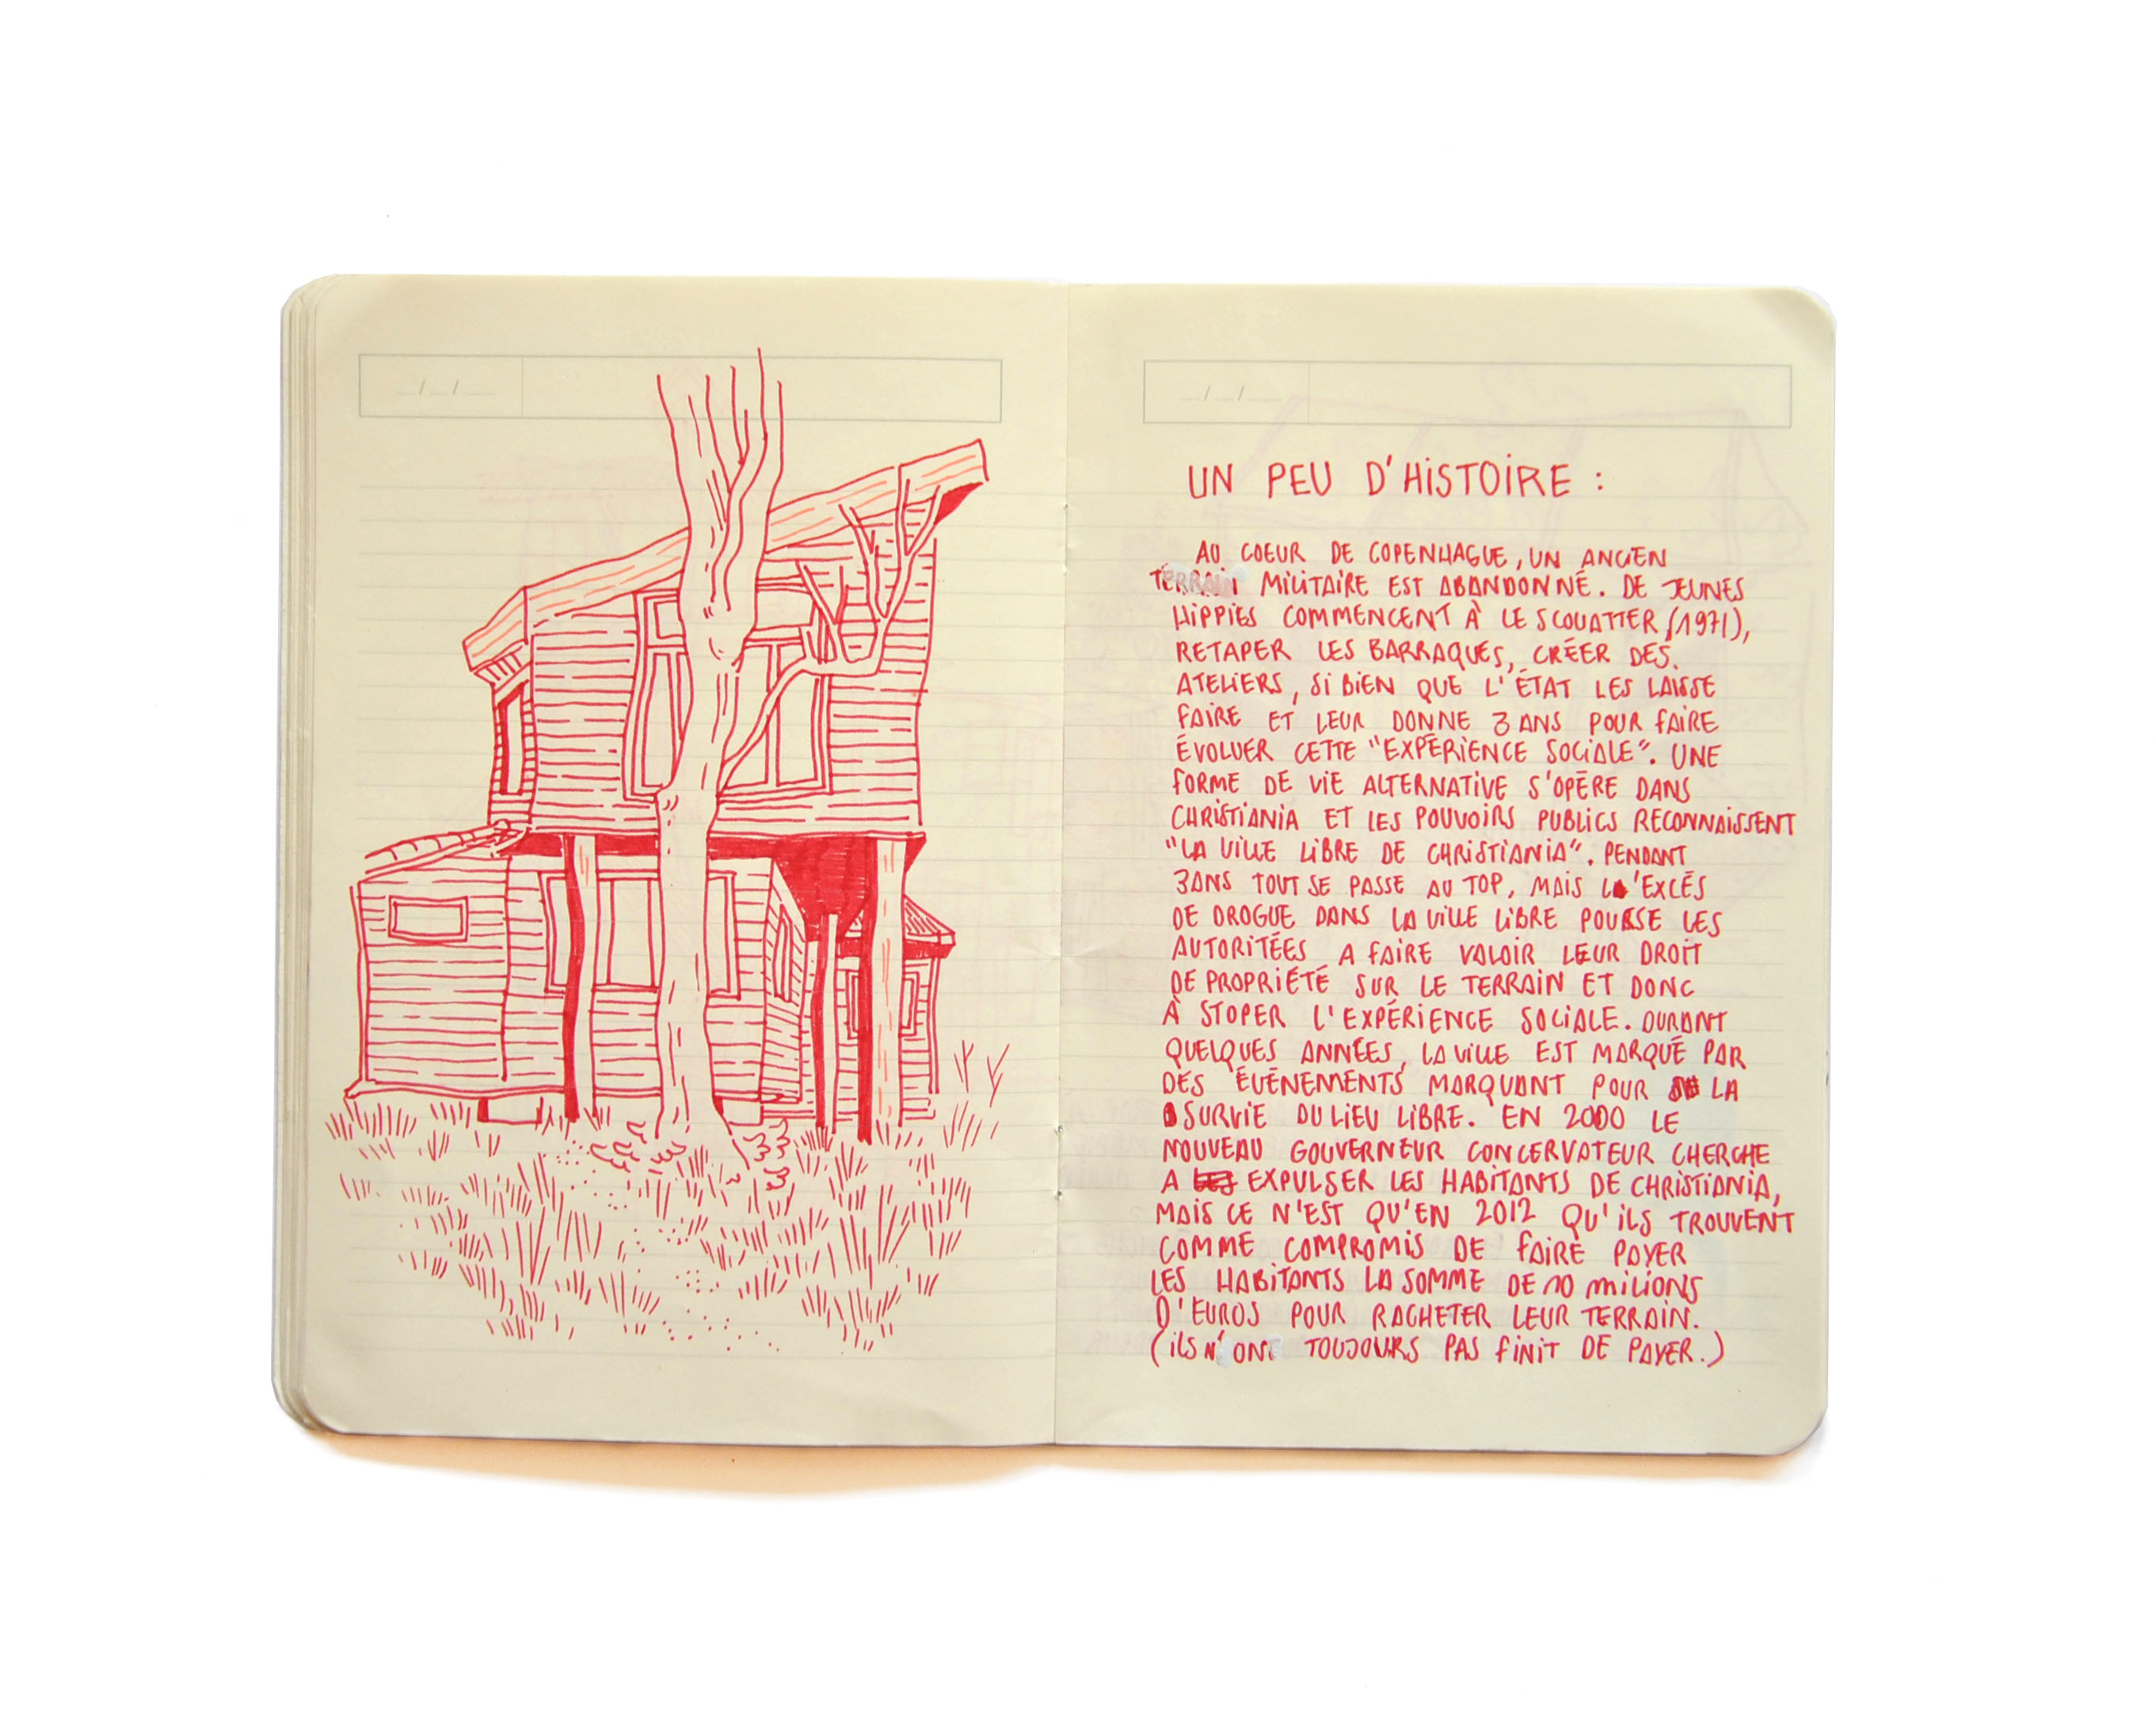 UN PEU D'HISTOIRE :
AU COEUR DE COPENHAGUE, UN ANCIEN
TERRAIN MILITAIRE EST ABANDONNÉ. DE JEUNES
HIPPIES COMMENCENT À LE SCOUATTER (1971),
RETAPER LES BARRAQUES, CRÉER DES
ATELIERS, SI BIEN QUE L'ÉTAT LES LAISSE
FAIRE ET LEUR DONNE 3 ANS POUR FAIRE
ÉVOLUER CETTE "EXPÉRIENCE SOCIALE". UNE
FORME DE VIE ALTERNATIVE S'OPÈRE DANS
CHRISTIANIA ET LES POUVOIRS PUBLICS RECONNAISSENT
"LA VILLE LIBRE DE CHRISTIANIA". PENDANT
3ANS TOUT SE PASSE AU TOP, MAIS L'EXCÉS
DE DROGUE DANS LA VILLE LIBRE POUSSE LES
AUTORITÉES A FAIRE VALOIR LEUR DROIT
DE PROPRIÉTÉ SUR LE TERRAIN ET DONC
À STOPER L'EXPÉRIENCE SOCIALE. DURANT
QUELQUES ANNÉES, LA VILLE EST MARQUÉ PAR
DES ÉVÉNEMENTS MARQUANT POUR LA
SURVIE DU LIEU LIBRE. EN 2000 LE
NOUVEAU GOUVERNEUR CONCERVATEUR CHERCHE
A EXPULSER LES HABITANTS DE CHRISTIANIA,
MAIS CE N'EST QU'EN 2012 QU'ILS TROUVENT
COMME COMPROMIS DE FAIRE PAYER
LES HABITANTS LA SOMME DE 10 MILIONS
D'EUROS POUR RACHETER LEUR TERRAIN.
(ILS N'ONT TOUJOURS PAS FINIT DE PAYER.)